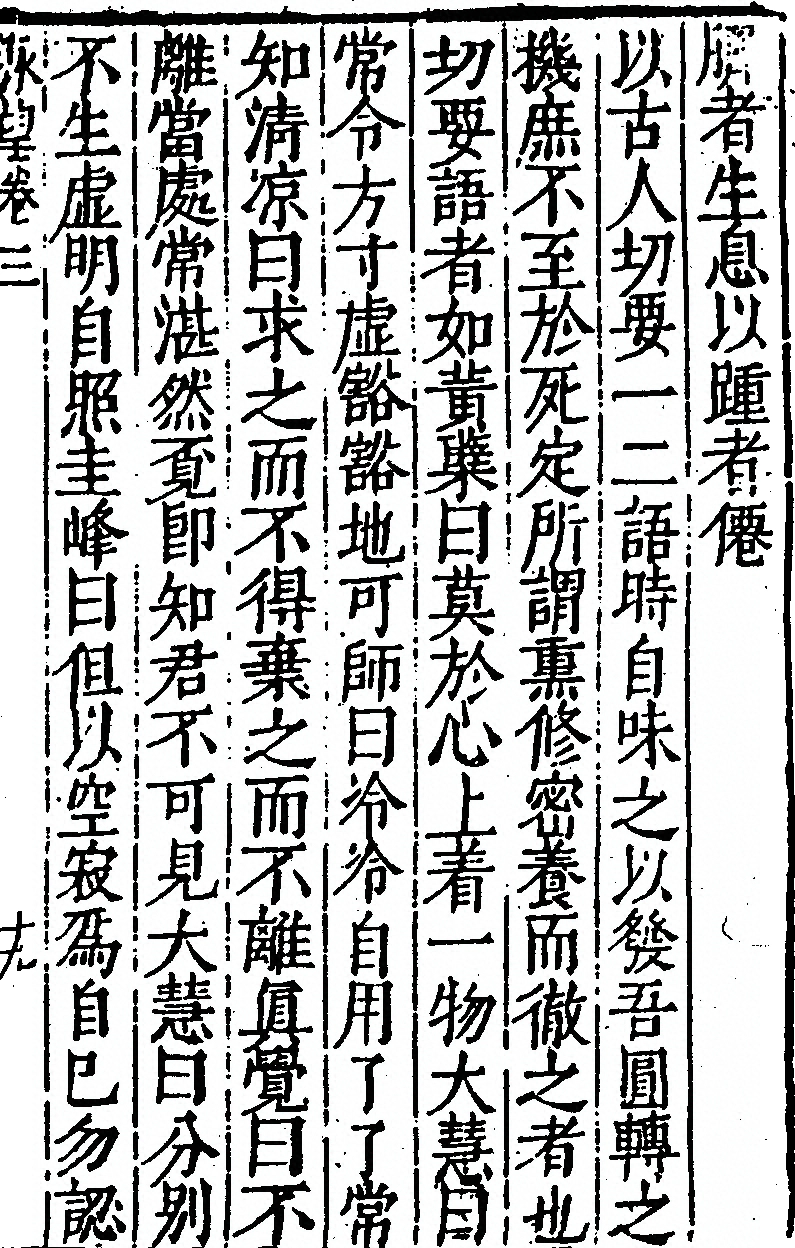 者生息以踵者僊
以古人切要一二語時自味之以發吾圓轉之
機庶不至於死定所謂熏修密養而徹之者也
切要語者如黃檗曰莫於心上着一物大慧曰
常令方寸虛豁豁地可師曰冷冷自用了了常
知清凉曰求之而不得棄之而不離眞覺曰不
離當處常湛然覔卽知君不可見大慧曰分別
不生虛明自照圭峰曰但以空寂爲自己勿認
卷三